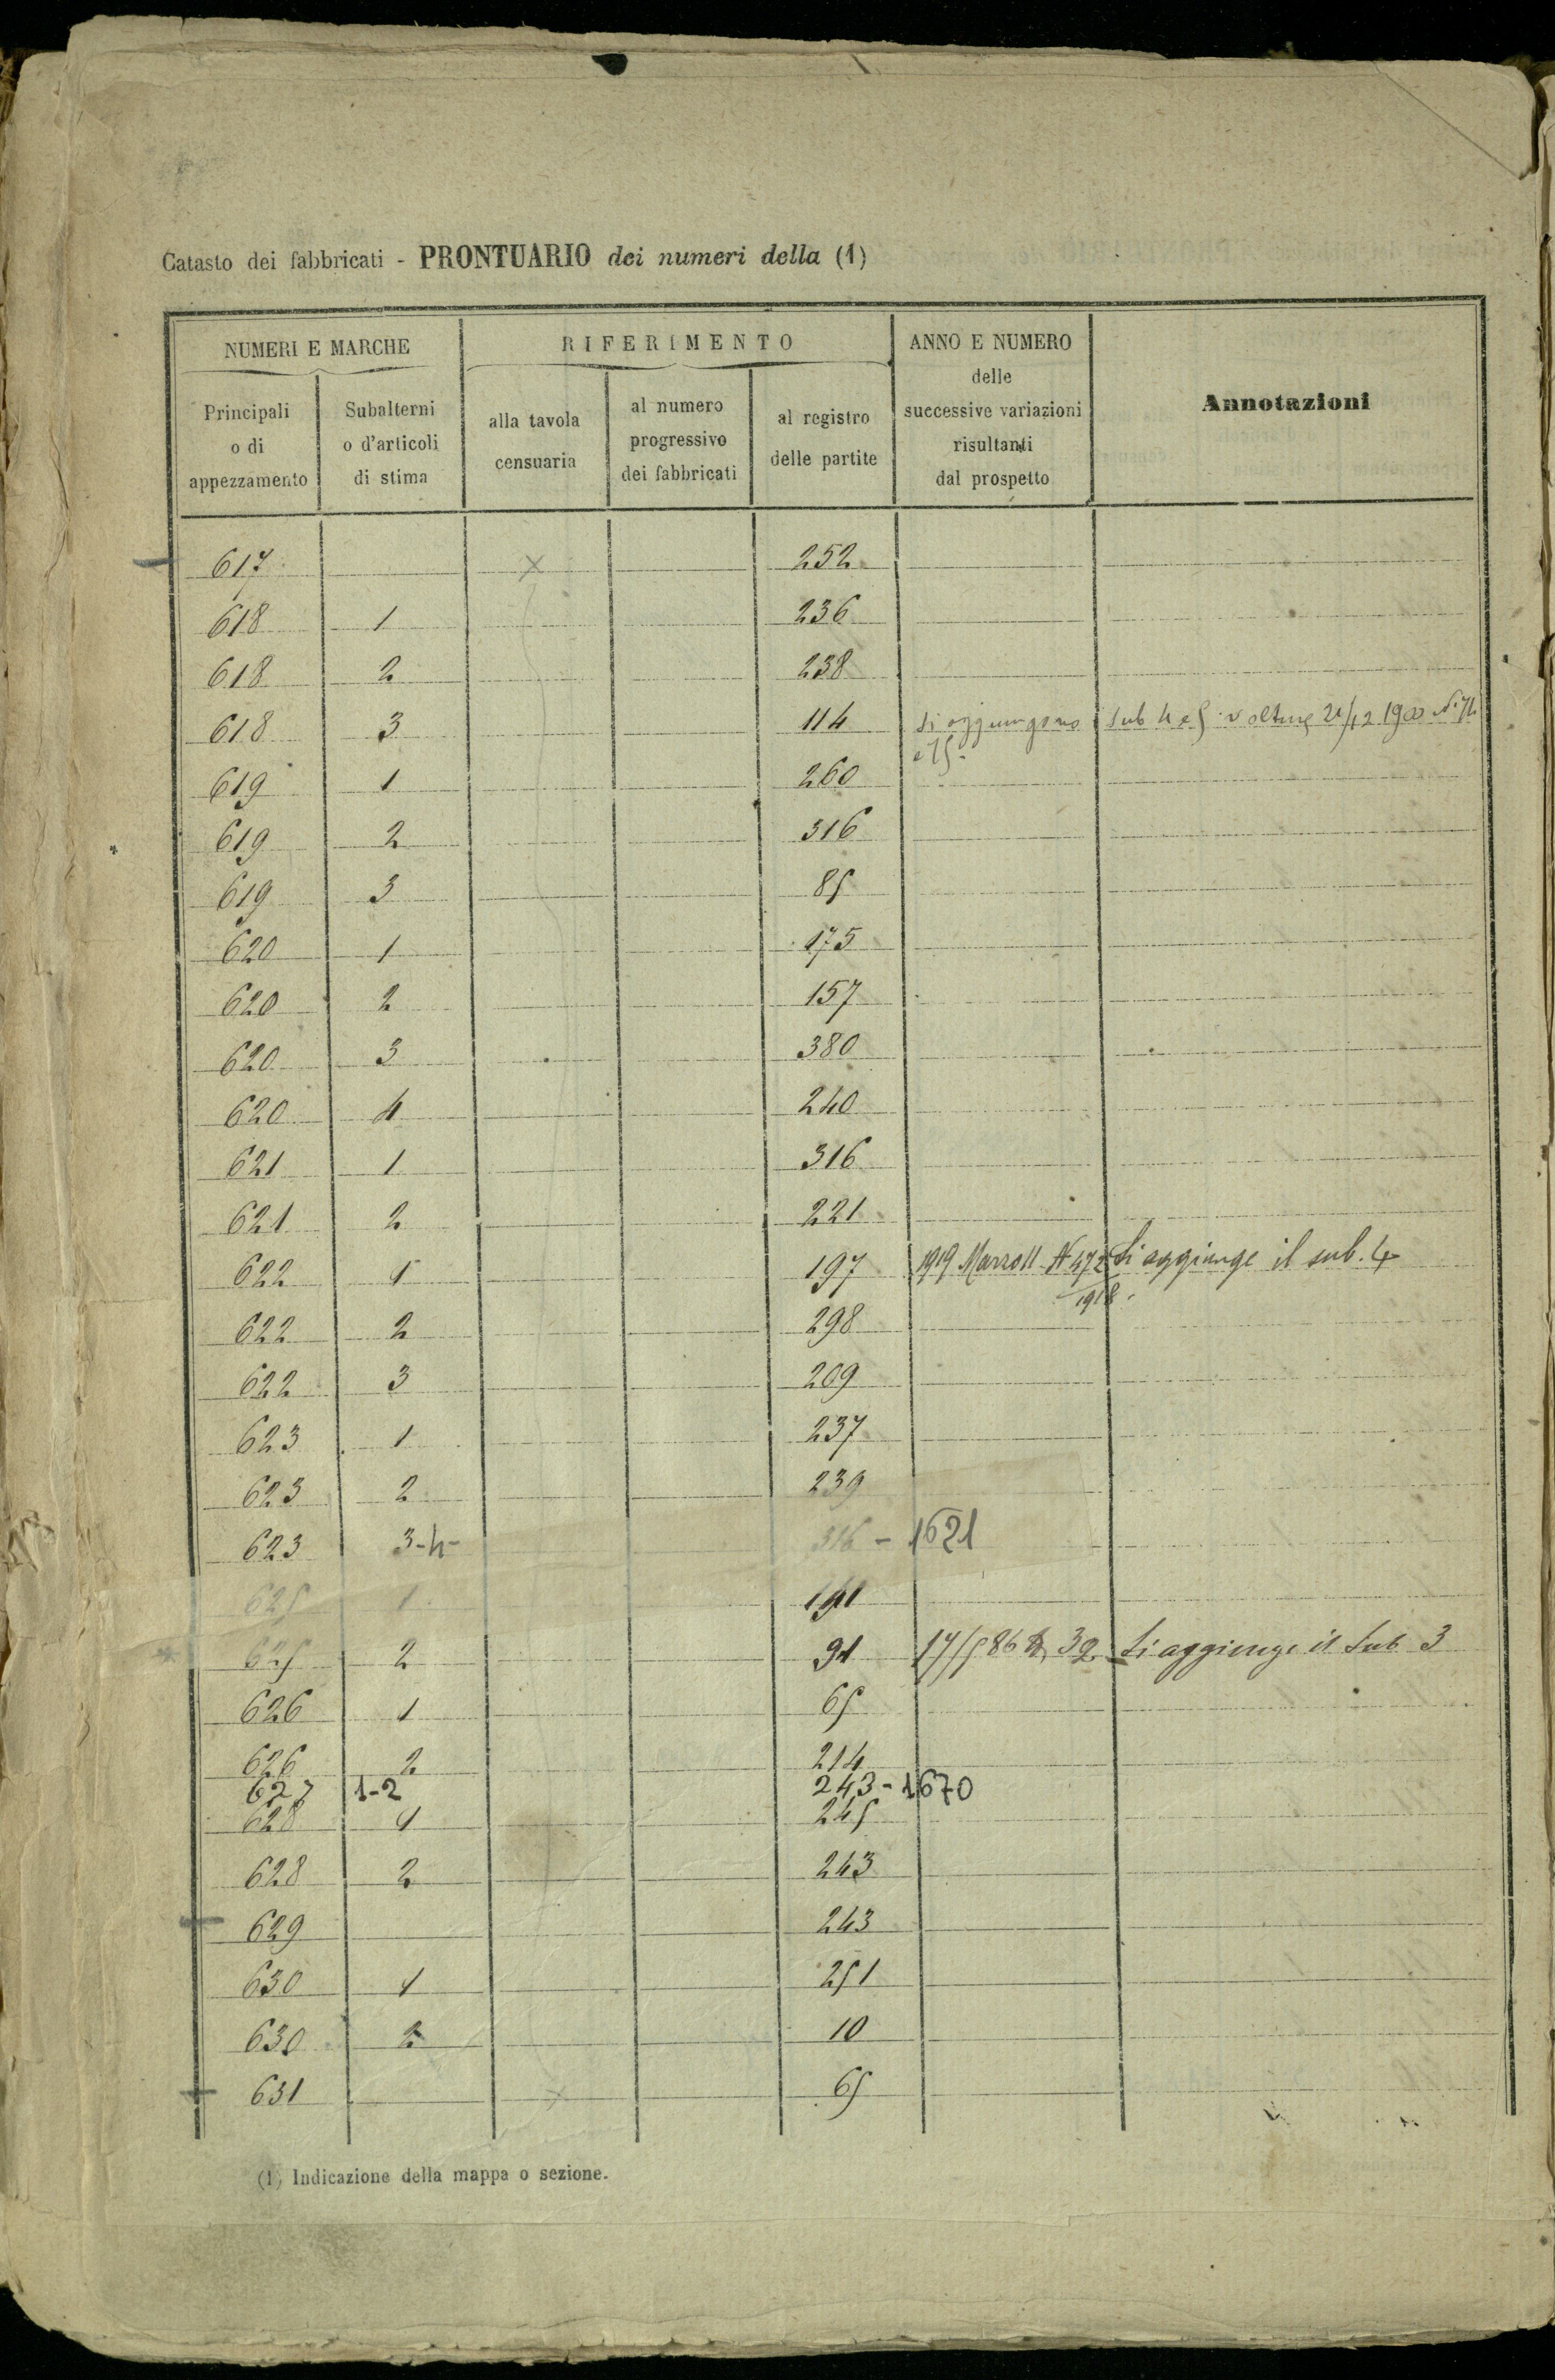 Catasto dei fabbricati - PRONTUARIO dei numeri della (1)
NUMERI E MARCHE
RIFERIMENTO
ANNO E NUMERO delle successive variazioni risultanti dal prospetto
Annotazioni
Principali o di appezzamento
Subalterni o d'articoli di stima
alla tavola censuaria
al numero progressivo dei fabbricati
al registro delle partite
617 × 252
618 1 236
618 2 238
618 3 114 Si aggiungono sub 4 e 5 volture 1900
619 1 260
619 2 316
619 3 85
620 1 175
620 2 157
620 3 380
620 4 240
621 1 316
621 2 221
622 1 197 1919 N 472 Si aggiunge il sub. 4
1918
622 2 298
622 3 209
623 1 237
623 2 239
623 3-4- 316 - 1621
625 1 191
625 2 91 Si aggiunge il Sub 3
626 1 65
626 2 214
627 1-2 243-1670
628 1 245
628 2 243
629 243
630 1 251
630 2 10
631 × 65
(1) Indicazione della mappa o sezione.